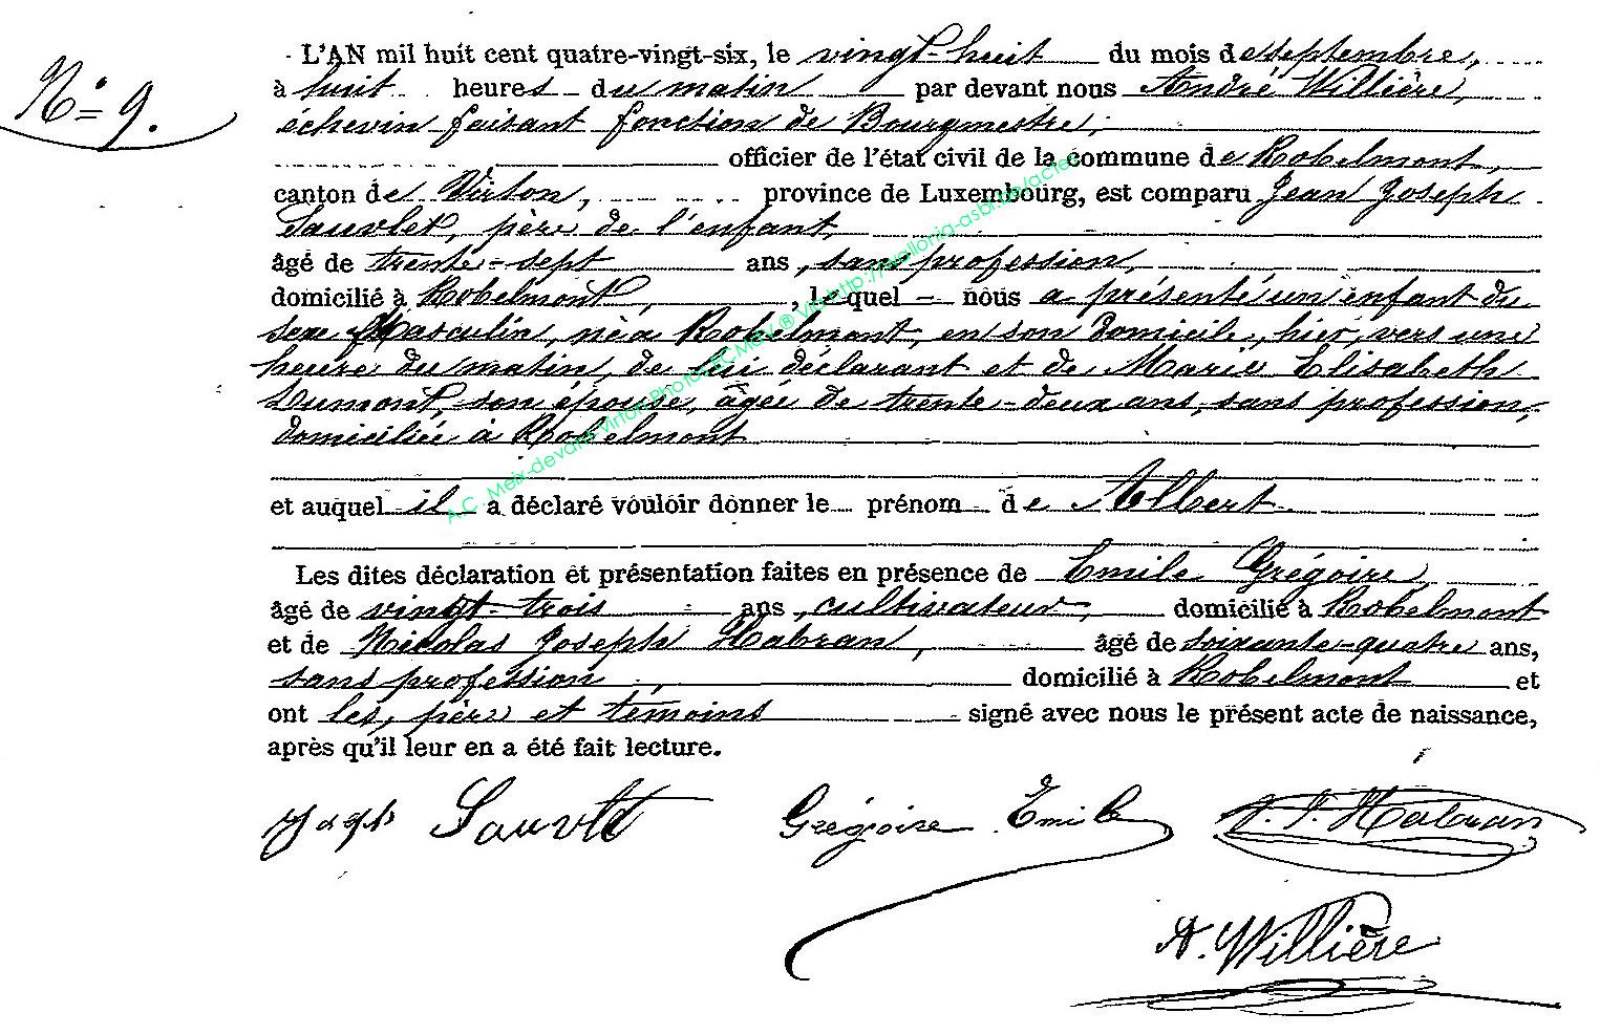 N° 9.
L'AN mil huit cent quatre-vingt-six, le vingt-huit du mois de septembre,
à huit heures du matin par devant nous André Willière,
échevin faisant fonction de Bourgmestre,
officier de l'état civil de la commune de Robelmont,
canton de Virton, province de Luxembourg, est comparu Jean Joseph
Sauvlet, père de l'enfant,
âgé de trente-sept ans, sans profession,
domicilié à Robelmont, lequel nous a présenté un enfant du
sexe Masculin, né à Robelmont, en son domicile, hier, vers une
heure du matin, de lui déclarant et de Marie Elisabeth
Dumont, son épouse, âgée de trente-deux ans, sans profession,
domiciliée à Robelmont
et auquel il a déclaré vouloir donner le prénom de Albert
Les dites déclaration et présentation faites en présence de Emile Grégoire,
âgé de vingt-trois ans, cultivateur, domicilié à Robelmont
et de Nicolas Joseph Habran, âgé de soixante-quatre ans,
sans profession, domicilié à Robelmont et
ont les, père et témoins signé avec nous le présent acte de naissance,
après qu'il leur en a été fait lecture.
Sauvlet Grégoire Emile Habran
A. Willière
A.C. Meix-devant-Virton Photo ECMGV ® Via http://wallonia-asbl.be/actes